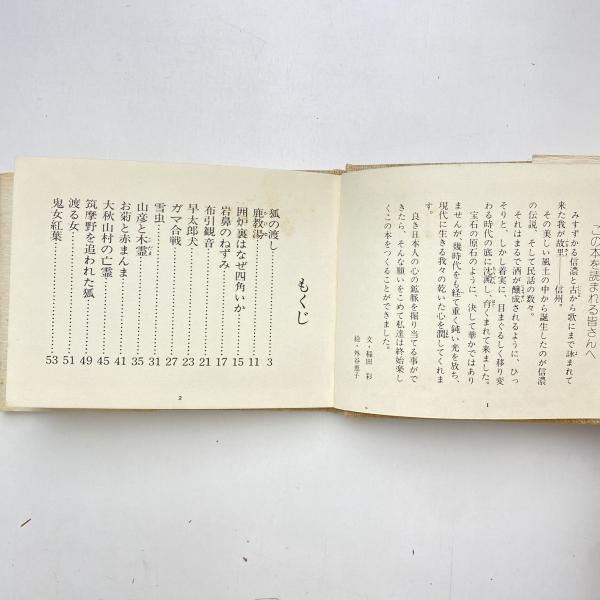 この本を読まれる皆さんへ
みすずかる信濃と古から歌にまで詠まれて
来た我が故里――信州。
その美しい風土の中から誕生したのが信濃
の伝説、そして民話の数々。
それはまるで酒が醸成されるように、ひっ
そりと、しかし着実に、目まぐるしく移り変
わる時代の底に沈澱し、育くまれて来ました。
宝石の原石のように、決して華かではあり
ませんが、幾時代をも経て重く鈍い光を放ち、
現代に生きる我々の乾いた心を潤してくれま
す。
良き日本人の心の鉱脈を掘り当てる事がで
きたら、そんな願いをこめて私達は終始楽し
くこの本をつくることができました。
文・稲田 彩
絵・外谷恵子
1
もくじ
狐の渡し……3
鹿教湯……11
囲炉裏はなぜ四角いか……15
岩鼻のねずみ……17
布引観音……21
早太郎犬……23
ガマ合戦……27
雪虫……31
山彦と木霊……35
お菊と赤まんま……41
大秋山村の亡霊……45
筑摩野を追われた狐……49
渡る女……51
鬼女紅葉……53
2